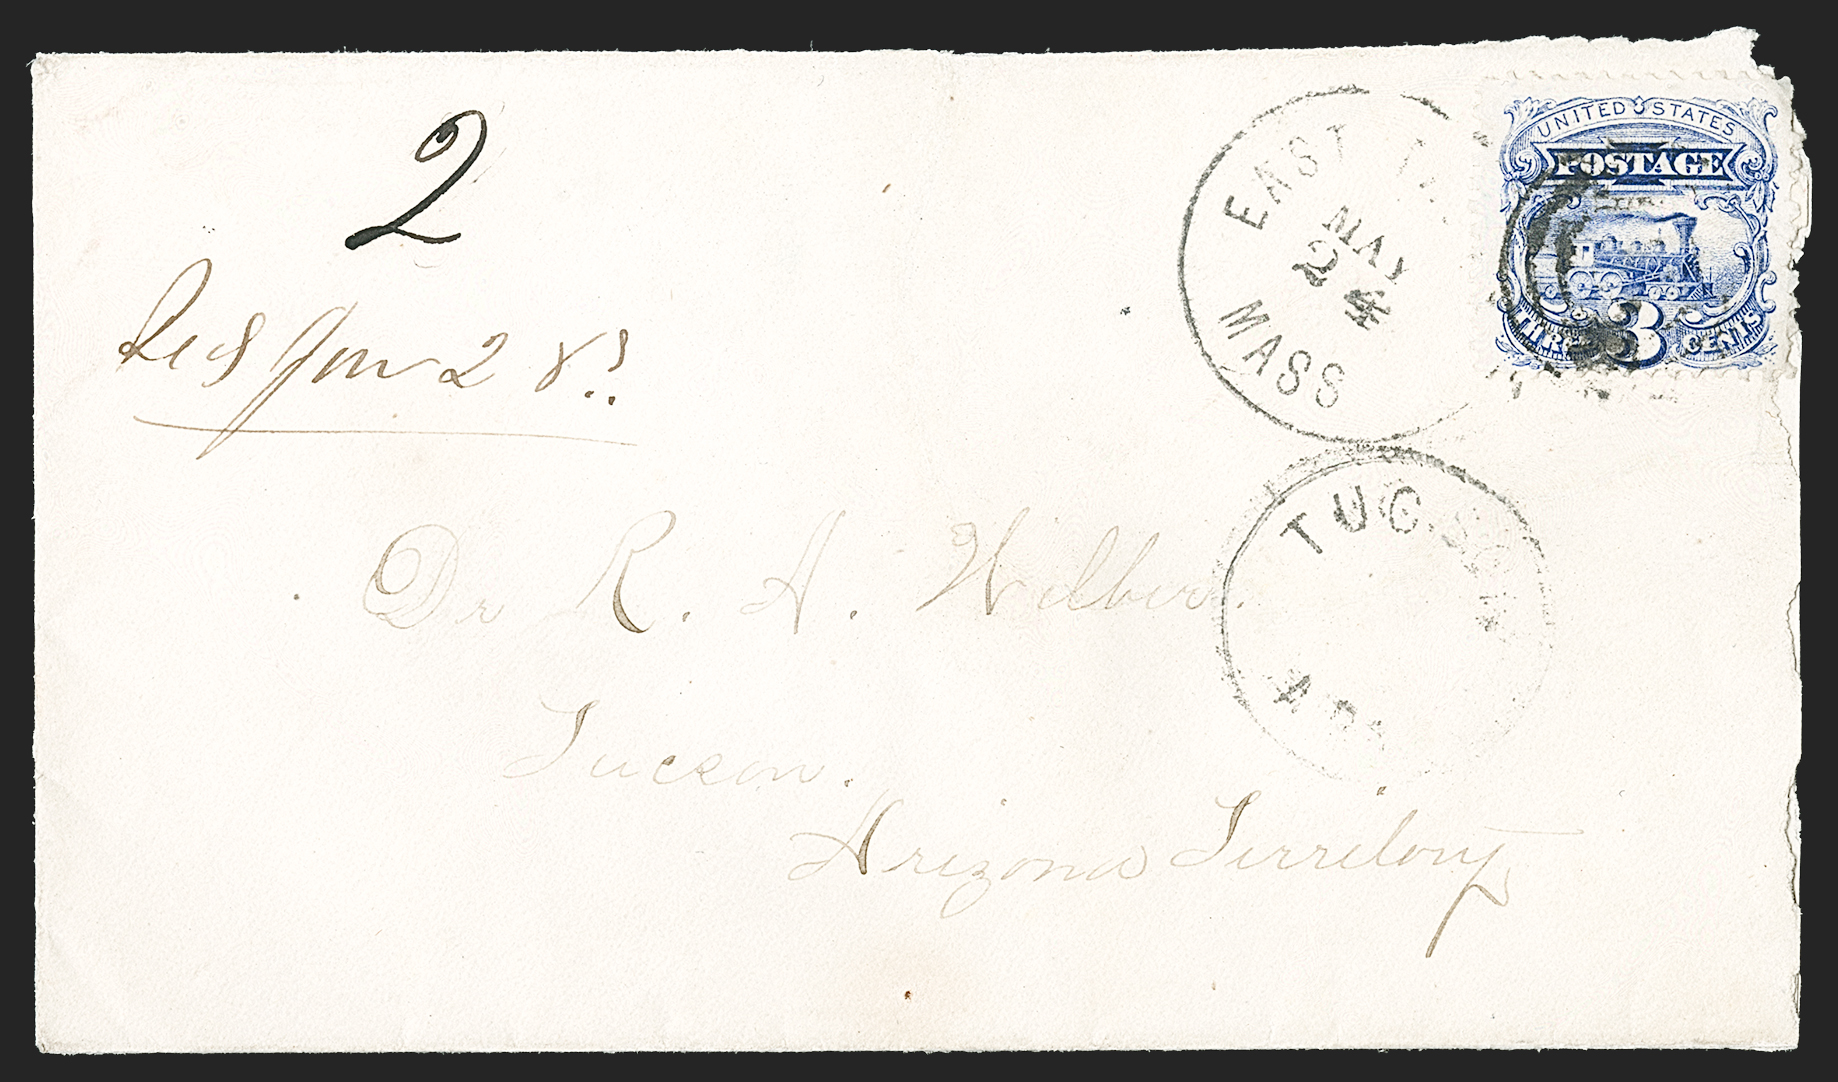 2
UNITED STATES
POSTAGE
3
CENTS
EAST
MAY
24
MASS
Recd Jun 2
TUCSON
Dr R. A. Wilbur.
Tucson.
Arizona Territory